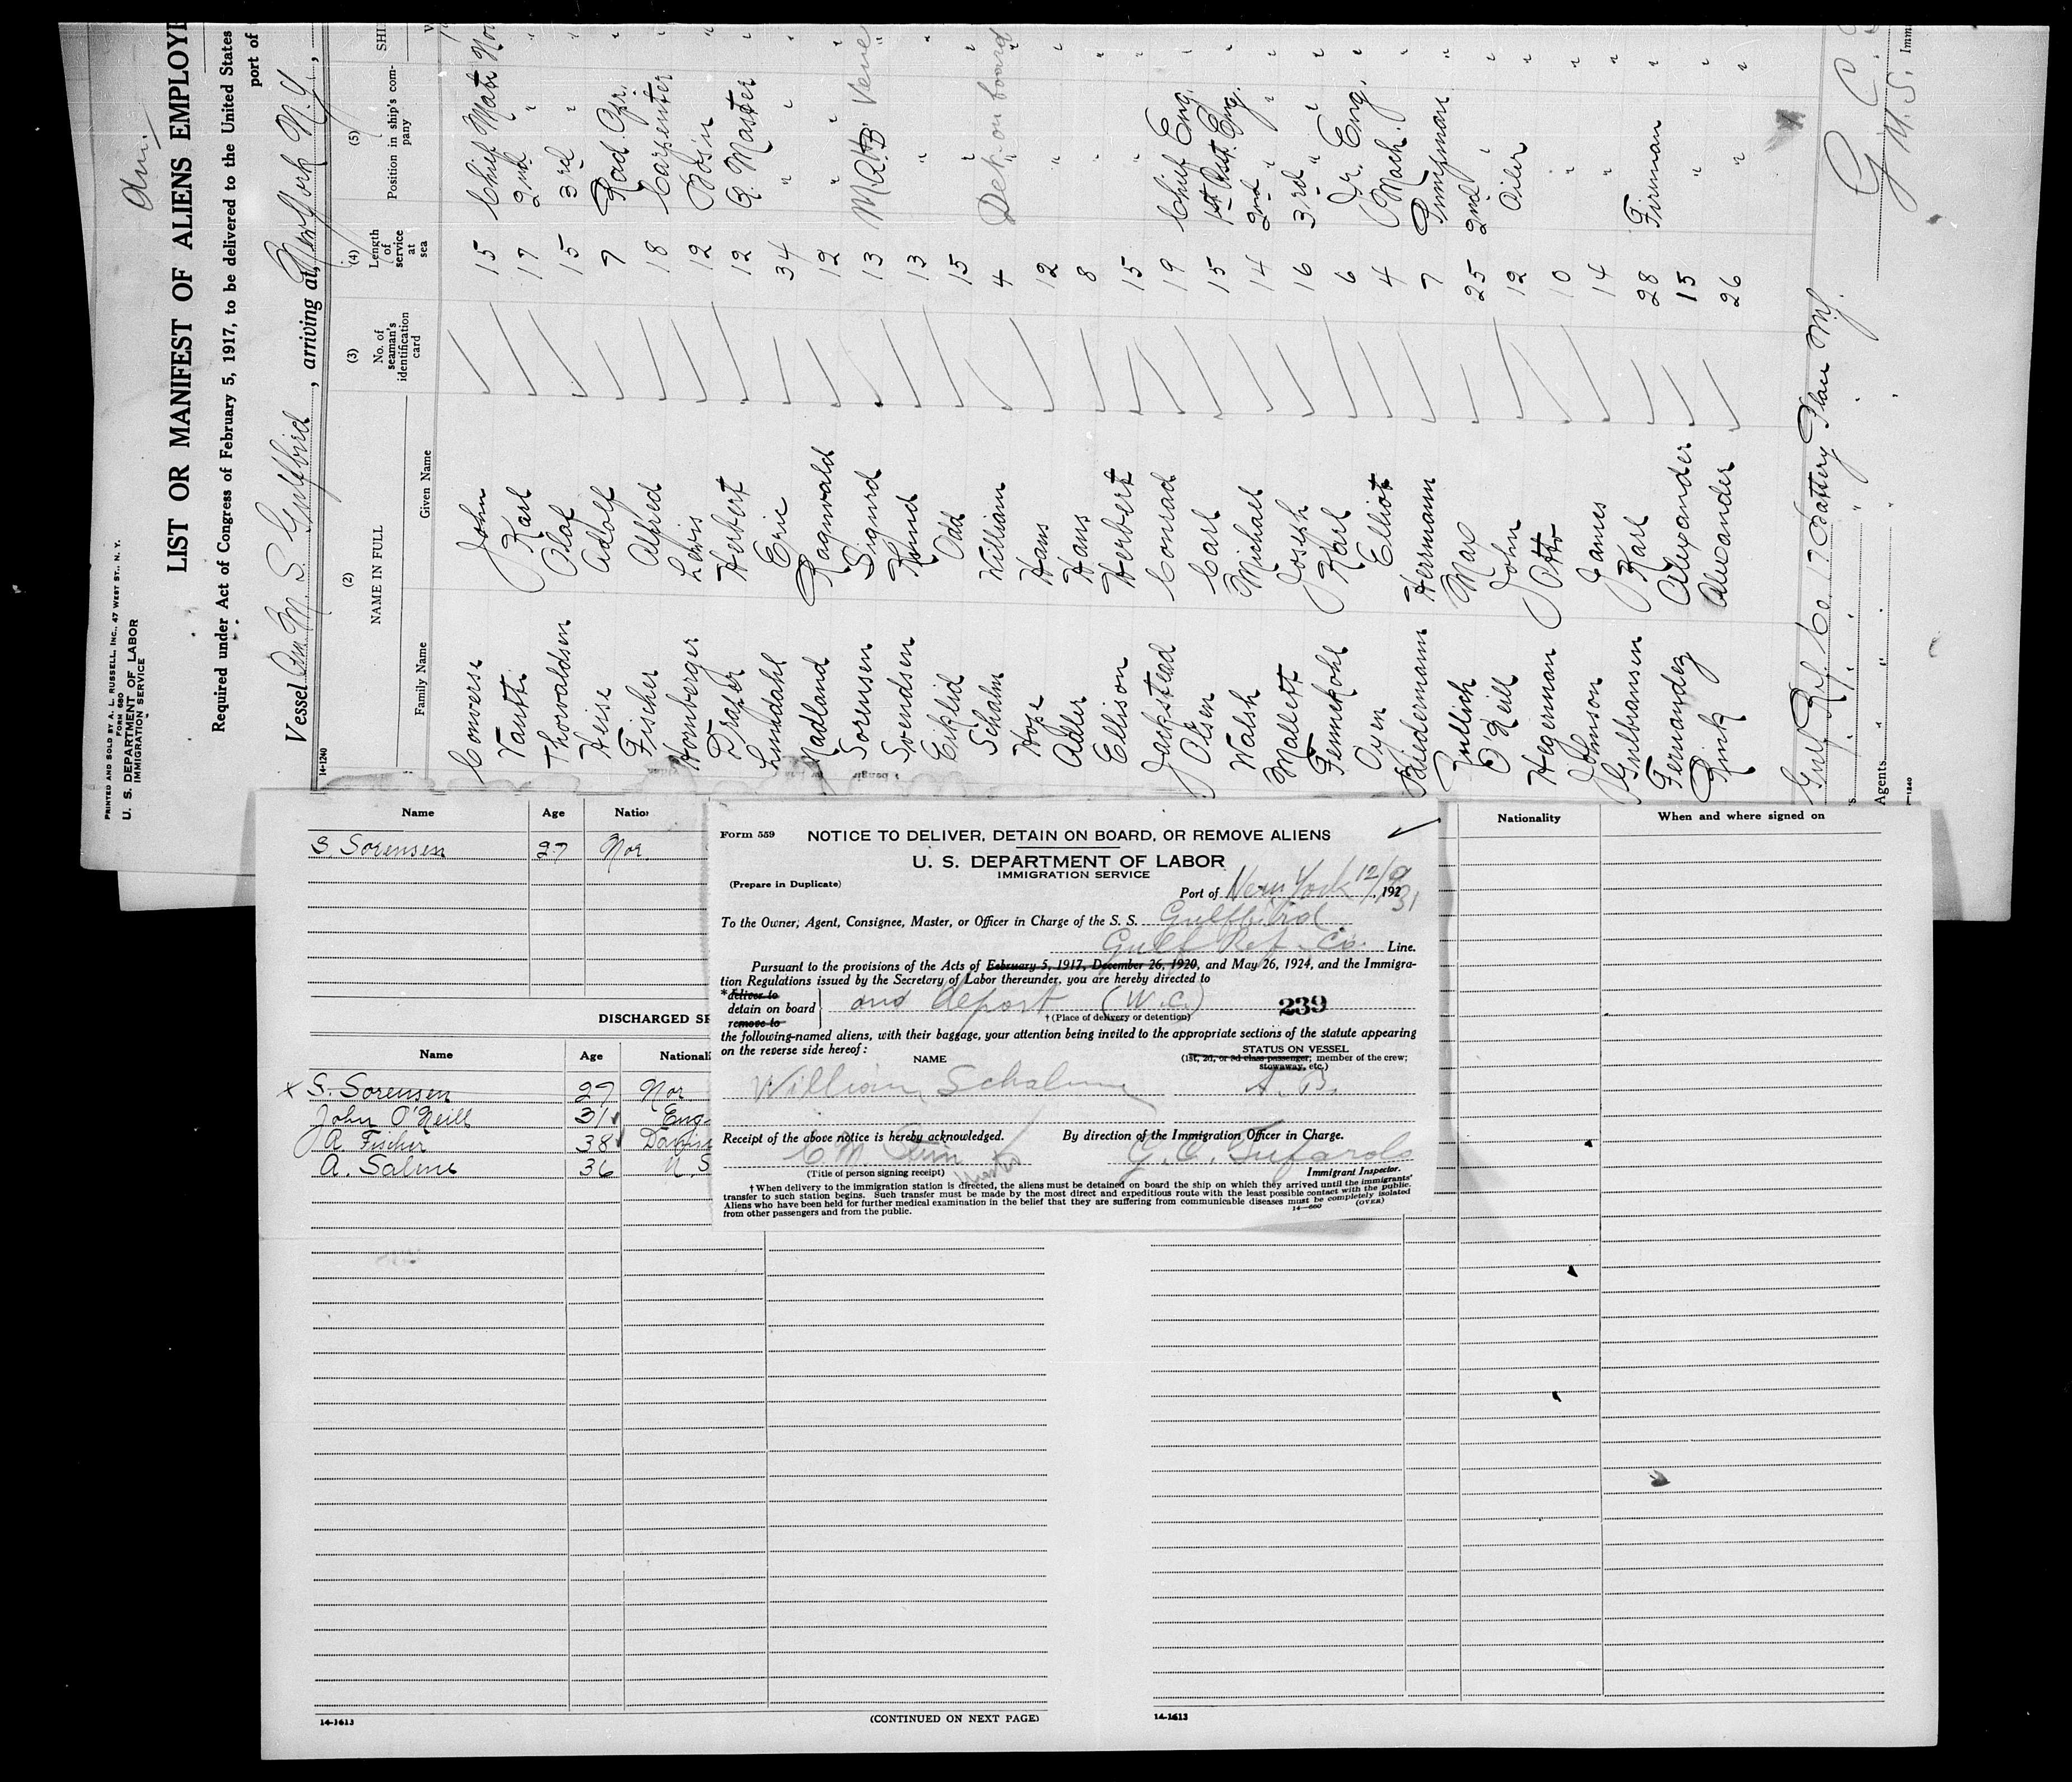 PRINTED AND SOLD BY A. L. RUSSELL, INC., 47 WEST ST., N. Y.
FORM 680
U. S. DEPARTMENT OF LABOR
IMMIGRATION SERVICE
LIST OR MANIFEST OF ALIENS EMPLOYE
Required under Act of Congress of February 5, 1917, to be delivered to the United States
port of
Vessel Am M. S. Gulfbird, arriving at New York N.Y.,
14-1240
(2) (3) (4) (5)
NAME IN FULL No. of seaman's identification card Length of service at sea Position in ship's company SHI
Family Name Given Name
Converse John 15 Chief Mate
Vautt Karl 17 2nd "
Thorvaldsen Olaf 15 3rd "
Heise Adolf 7 Rad Opr.
Fischer Alfred 18 Carpenter
Homberger Lewis 12 Bos'n
Draper Herbert 12 Q. Master
Lundahl Eric 34 " "
Madland Ragnvald 12 " "
Sorensen Sigurd 13 A.B.
Svendsen 13 "
Eiklid Odd 15 "
Schalm William 4 " Det. on board
Hope Hans 12 "
Adler Hans 8 "
Ellison Herbert 15 "
Jackstead Conrad 19 Chief Eng.
Olsen Carl 15 1st Asst. Eng.
Walsh Michael 14 2nd " "
Mallett Joseph 16 3rd " "
Fennekohl Karl 6 Jr. Eng.
Oyen Elliot 4 Mach.
Biedermann Herrmann 7 Pumpman
Zullich Max 25 2nd "
O'Neill John 12 Oiler
Hegerman Otto 10 "
Johnson James 14 "
Gulbransen Karl 28 Fireman
Fernandez Alexander 15 "
Rink Alexander 26 "
Gulf Ref. Co. 17 Battery Place N.Y.
Agents
Name Age Natio
S. Sorensen 27 Nor.
Nationality When and where signed on
DISCHARGED SE
Name Age Nationali
x S. Sorensen 27 Nor
John O'Neill 31 Eng.
A. Fischer 38 Danis
A. Salme 36 U. S
Form 559
NOTICE TO DELIVER, DETAIN ON BOARD, OR REMOVE ALIENS
U. S. DEPARTMENT OF LABOR
IMMIGRATION SERVICE
(Prepare in Duplicate)
Port of New York 12/9, 192 31
To the Owner, Agent, Consignee, Master, or Officer in Charge of the S. S. Gulfbird
Gulf Ref. Co. Line.
Pursuant to the provisions of the Acts of February 5, 1917, December 26, 1920, and May 26, 1924, and the Immigra-
tion Regulations issued by the Secretary of Labor thereunder, you are hereby directed to
*deliver to
detain on board } and deport (W.C.) 239
remove to
†(Place of delivery or detention)
the following-named aliens, with their baggage, your attention being invited to the appropriate sections of the statute appearing
on the reverse side hereof:
NAME STATUS ON VESSEL
(1st, 2d, or 3d class passenger; member of the crew;
stowaway, etc.)
William Schalm A. B.
Receipt of the above notice is hereby acknowledged. By direction of the Immigration Officer in Charge.
(Title of person signing receipt) Immigrant Inspector.
†When delivery to the immigration station is directed, the aliens must be detained on board the ship on which they arrived until the immigrants'
transfer to such station begins. Such transfer must be made by the most direct and expeditious route with the least possible contact with the public.
Aliens who have been held for further medical examination in the belief that they are suffering from communicable diseases must be completely isolated
from other passengers and from the public.
14—660 (OVER)
14-1613 (CONTINUED ON NEXT PAGE) 14-1613